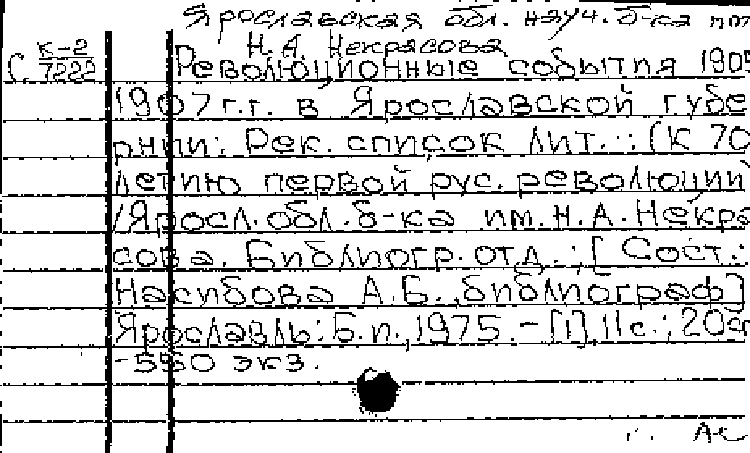 Ярославская обл. науч. б-ка
Н.А. Некрасова
С. К-2
7222
Революционные события 1905
1907 г.г. в Ярославской губе
рнии: Рек. список лит.: (К 70
летию первой рус. революции
/Яросл. обл. б-ка им. Н.А. Некра
сова. Библиогр. отд.; [Сост.:
Насибова А.Б., библиограф]
Ярославль: Б.и., 1975. - [1], 11 с.; 20см
-550 экз.